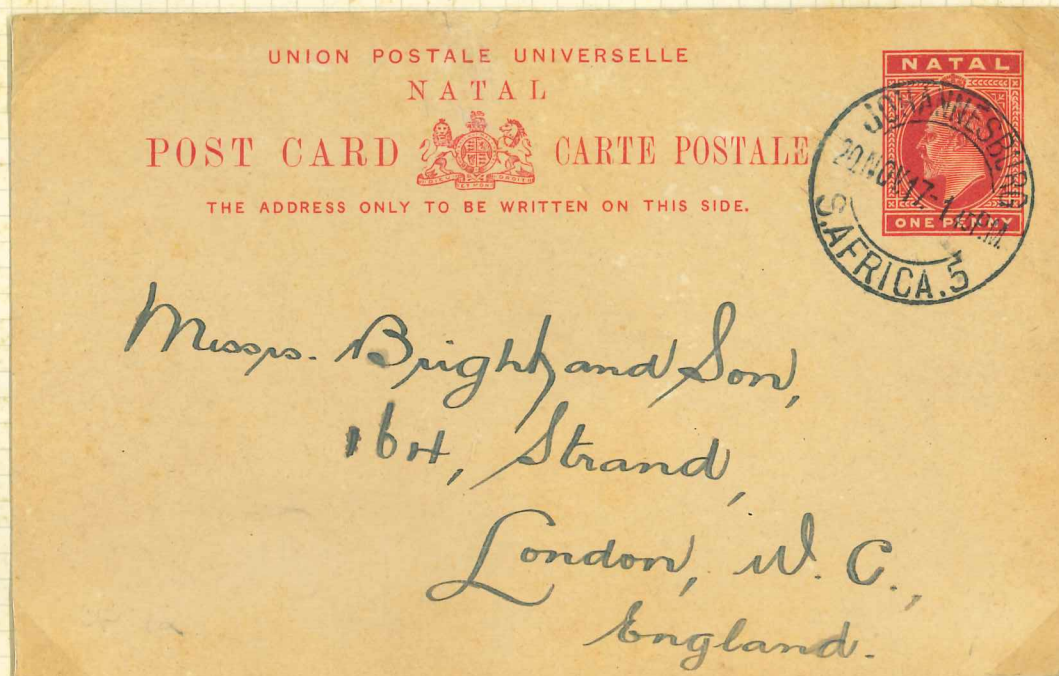 UNION POSTALE UNIVERSELLE
NATAL
POST CARD CARTE POSTALE
THE ADDRESS ONLY TO BE WRITTEN ON THIS SIDE.
NATAL
ONE PENNY
JOHANNESBURG
20 NOV 17-1 15 P.M.
S.AFRICA.5
Messrs. Bright and Son,
164, Strand,
London, W. C.,
England.